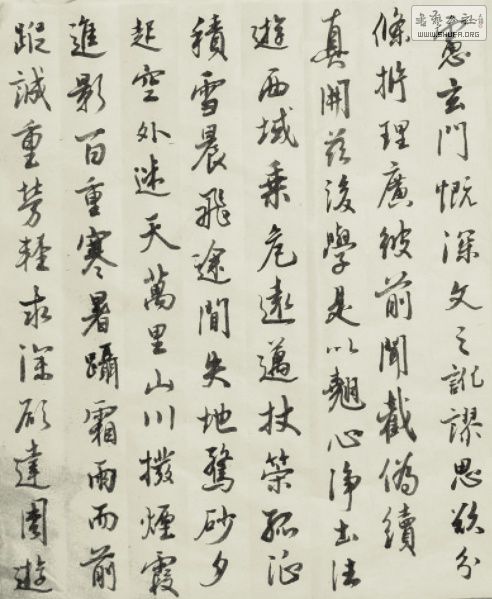 慧玄門慨深文之訛謬思欲分
條析理廣彼前聞截偽續
真開茲後學是以翹心淨土法
遊西域乘危遠邁杖策孤征
積雪晨飛途間失地驚砂夕
起空外迷天萬里山川撥煙霞
進影百重寒暑躡霜雨而前
蹤誠重勞輕求深願達周遊
WWW.SHUFA.ORG